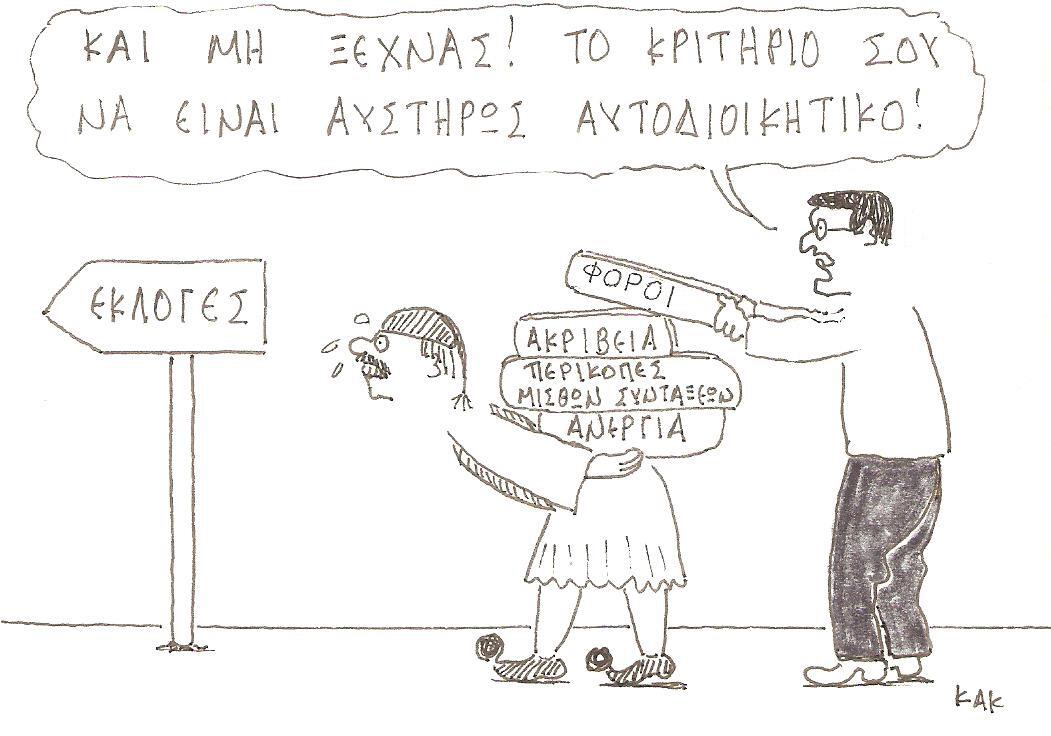 ΚΑΙ ΜΗ ΞΕΧΝΑΣ! ΤΟ ΚΡΙΤΗΡΙΟ ΣΟΥ
ΝΑ ΕΙΝΑΙ ΑΥΣΤΗΡΩΣ ΑΥΤΟΔΙΟΙΚΗΤΙΚΟ!
ΕΚΛΟΓΕΣ
ΦΟΡΟΙ
ΑΚΡΙΒΕΙΑ
ΠΕΡΙΚΟΠΕΣ
ΜΙΣΘΩΝ ΣΥΝΤΑΞΕΩΝ
ΑΝΕΡΓΙΑ
ΚΑΚ